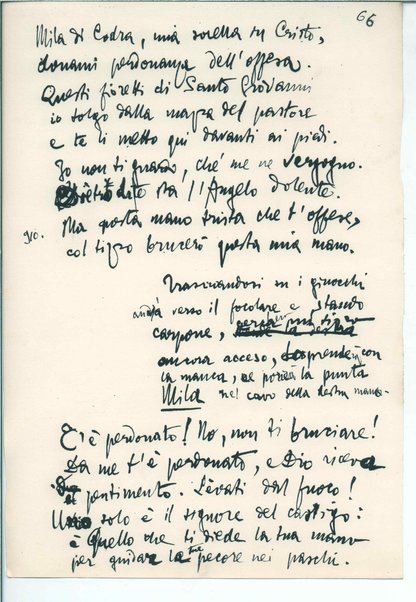 66
Mila di Codra, mia sorella in Cristo,
donami perdonanza dell'offesa.
Questi fioretti di Santo Giovanni
io tolgo dalla mazza del pastore
e te li metto qui davanti ai piedi.
Io non ti guardo, ché me ne vergogno.
Dietro di te sta l'Angelo dolente.
Ma questa mano trista che t'offese,
910. col tizzo brucerò questa mia mano.
Trascinandosi su i ginocchi
andrà verso il focolare e, stando
carpone,
ancora acceso, lo prenderà con
la manca, e porrà la punta
nel cavo della destra mano.
Mila
T'è perdonato! No, non ti bruciare!
Da me t'è perdonato, e Dio riceva
il pentimento. Lèvati dal fuoco!
Uno solo è il signore del castigo:
è Quello che ti diede la tua mano
per guidare le tue pecore nei paschi.